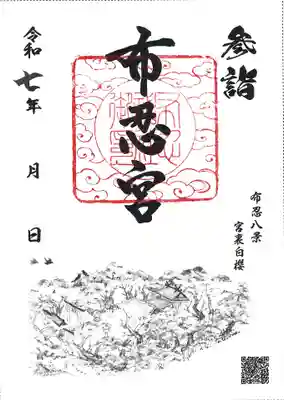 参詣
布忍宮
令和七年　月　日
布忍八景
宮裏白櫻